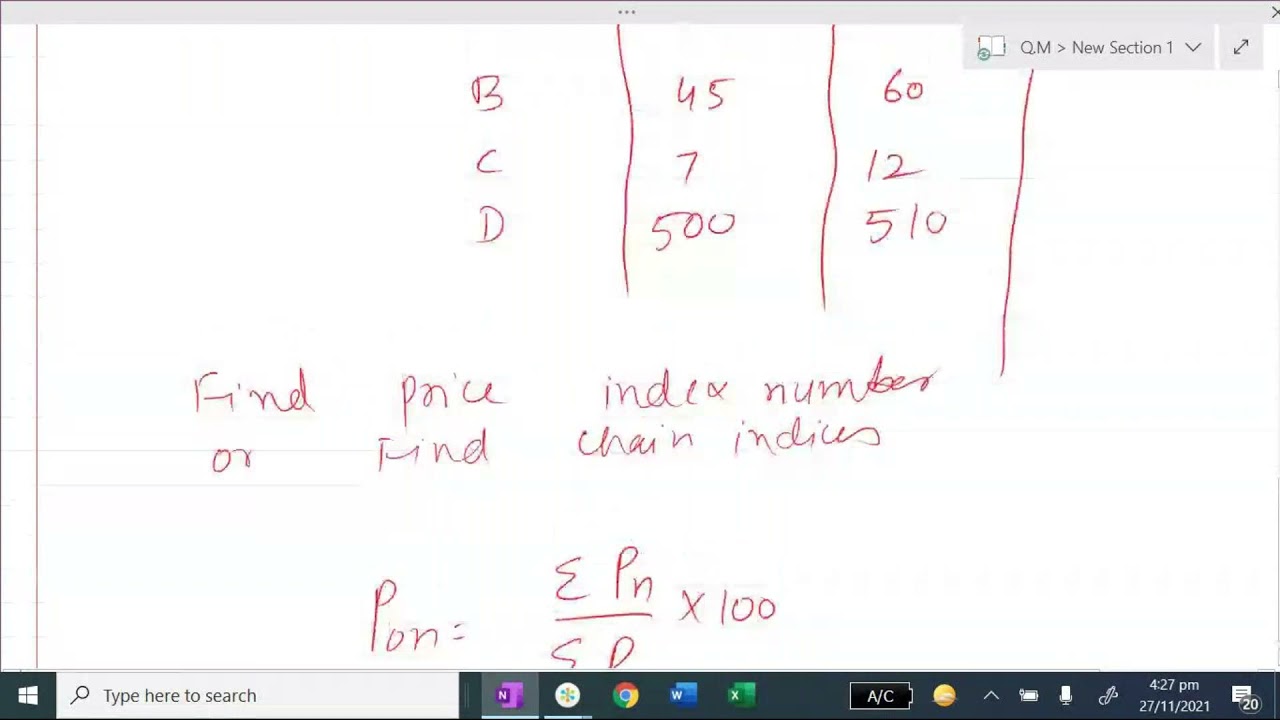 Q.M > New Section 1
B 45 60
C 7 12
D 500 510
Find price index number
or Find chain indices
Pon = Σ Pn × 100
Σ P
Type here to search
A/C
4:27 pm
27/11/2021
20